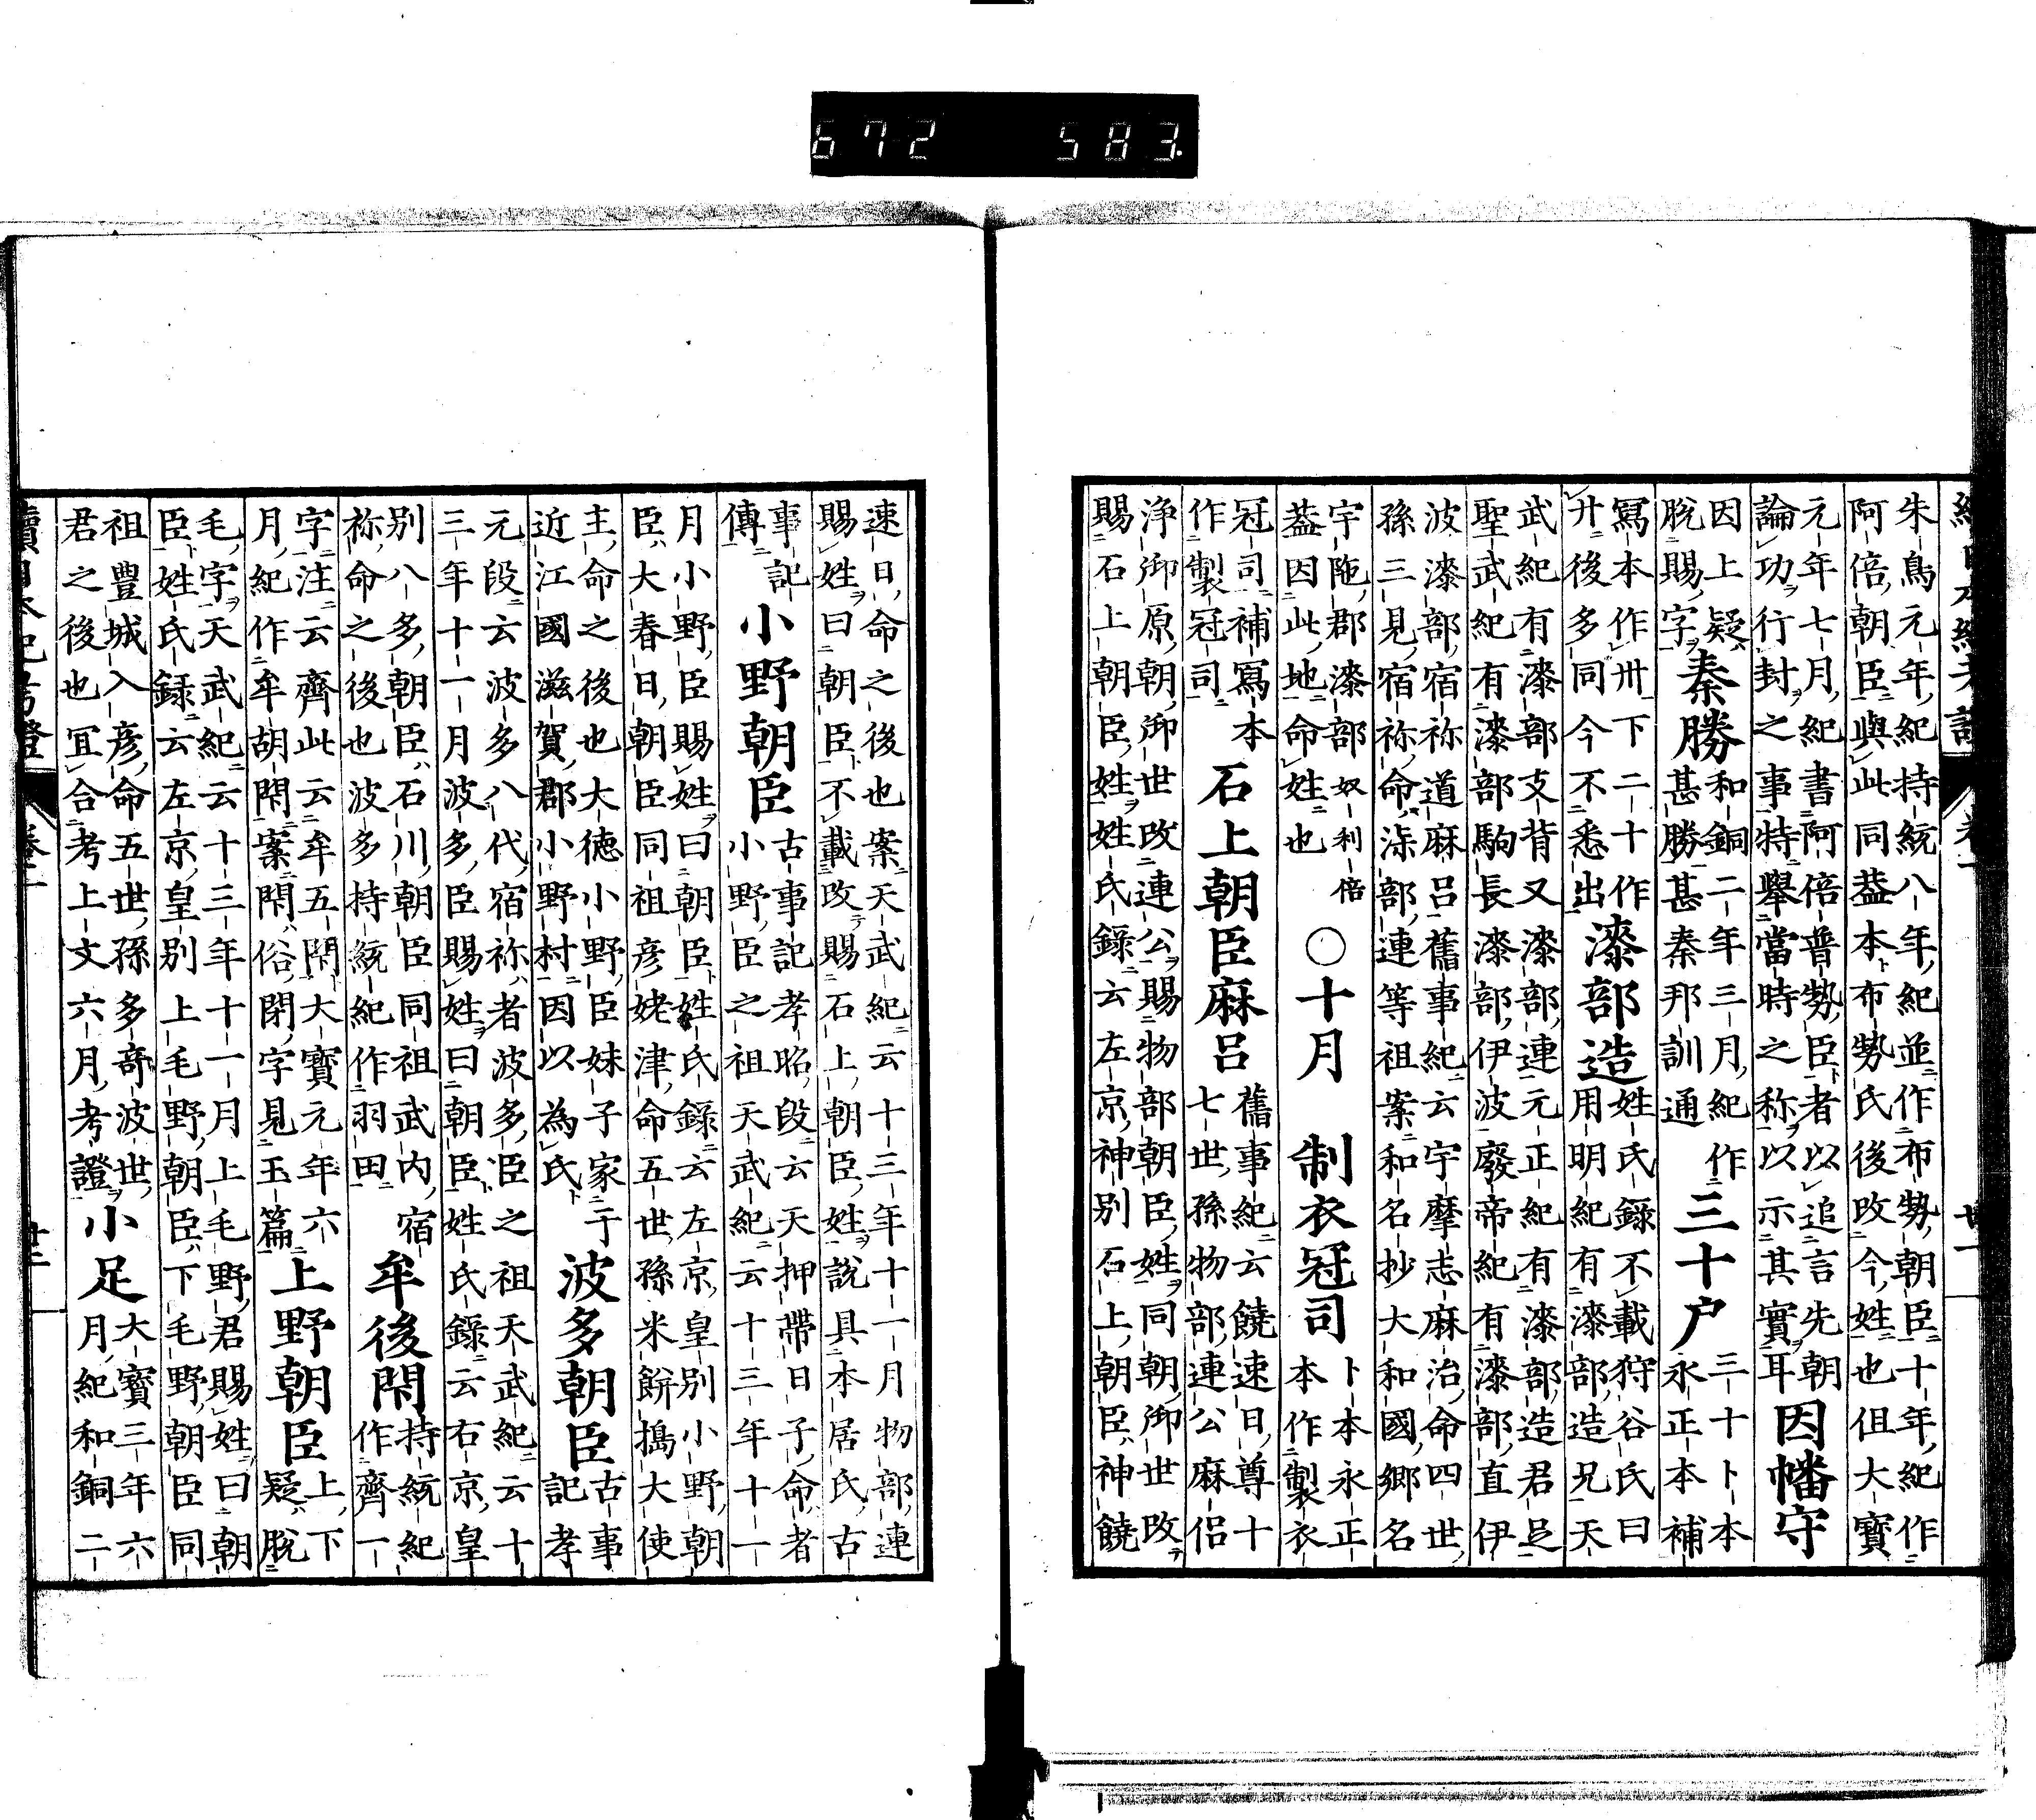 續日本紀考證 卷一 廿一
朱鳥元年紀持統八年紀並作布勢朝臣十年紀作
阿倍朝臣與此同蓋本布勢氏後改今姓也但大寶
元年七月紀書阿倍普勢臣者以追言先朝
論功行封之事特擧當時之称以示其實耳
因幡守
因上疑
脱賜字
秦勝
和銅二年三月紀作
甚勝甚秦邦訓通
三十户
三十卜本
永正本補
寫本作卅下二十作
廾後多同今不悉出
漆部造
姓氏録不載狩谷氏曰
用明紀有漆部造兄天
武紀有漆部支背又漆部連元正紀有漆部造君足
聖武紀有漆部駒長漆部伊波廢帝紀有漆部直伊
波漆部宿祢道麻呂舊事紀云宇摩志麻治命四世
孫三見宿祢命漆部連等祖案和名抄大和國郷名
宇陁郡漆部奴利倍
蓋因此地命姓也
○十月 制衣冠司
卜本永正
本作製衣
冠司補寫本
作製冠司
石上朝臣麻呂
舊事紀云饒速日尊十
七世孫物部連公麻侶
浄御原朝御世改連公賜物部朝臣姓同朝御世改
賜石上朝臣姓姓氏録云左京神別石上朝臣神饒
速日命之後也案天武紀云十三年十一月物部連
賜姓曰朝臣不載改賜石上朝臣姓説具本居氏古
事記
傳
小野朝臣
古事記孝昭段云天押帶日子命者
小野臣之祖天武紀云十三年十一
月小野臣賜姓曰朝臣姓氏録云左京皇別小野朝
臣大春日朝臣同祖彦姥津命五世孫米餅搗大使
主命之後也大徳小野臣妹子家于
近江國滋賀郡小野村因以為氏
波多朝臣
古事
記孝
元段云波多八代宿祢者波多臣之祖天武紀云十
三年十一月波多臣賜姓曰朝臣姓氏録云右京皇
別八多朝臣石川朝臣同祖武内宿
祢命之後也波多持統紀作羽田
牟後閇
持統紀
作齊一
字注云齊此云牟五閇大寶元年六
月紀作牟胡閇案閇俗閉字見玉篇
上野朝臣
上下
疑脱
毛字天武紀云十三年十一月上毛野君賜姓曰朝
臣姓氏録云左京皇別上毛野朝臣下毛野朝臣同
祖豊城入彦命五世孫多竒波世
君之後也冝合考上文六月考證
小足
大寶三年六
月紀和銅二
續日本紀考證 卷一 廿二
672 583.